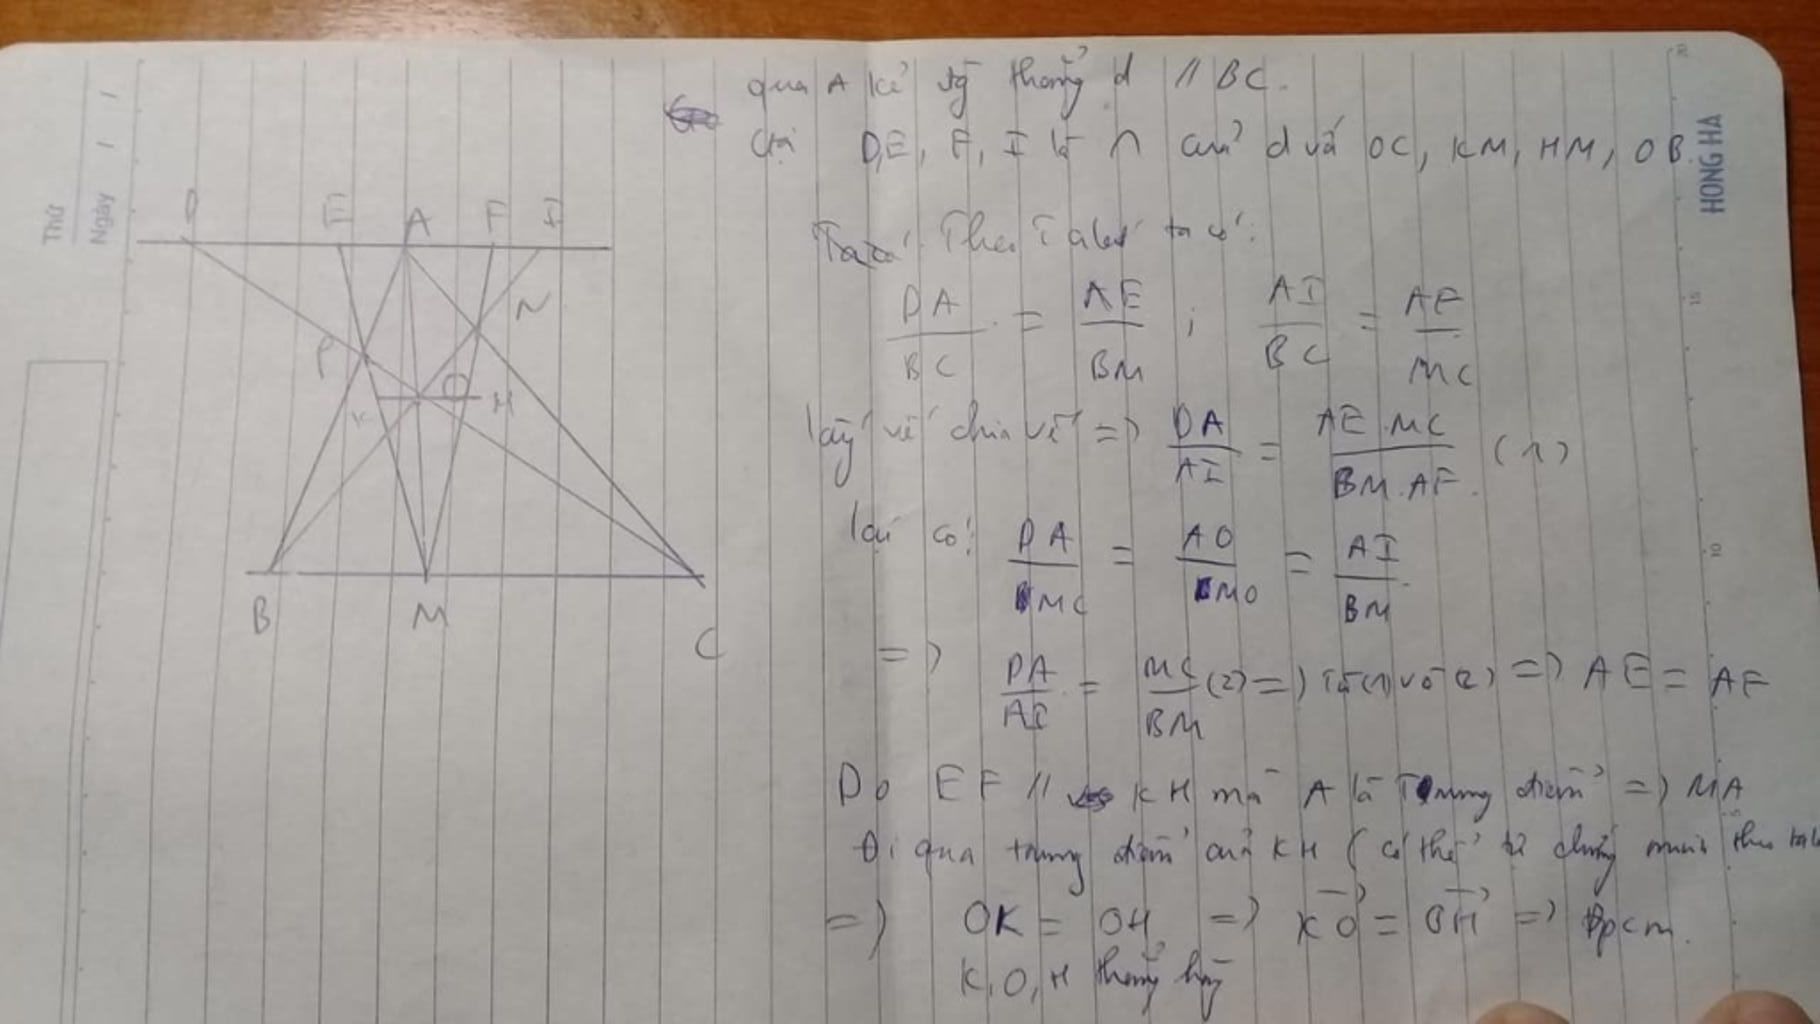 qua A kẻ đg thẳng d // BC.
Gọi D,E, F, I là ∩ của d và OC, KM, HM, OB.
HONG HA
Thứ
Ngày / /
Ta có: Theo Talet ta có:
DA/BC = AE/BM ; AI/BC = AF/MC
lấy vế chia vế => DA/AI = AE.MC/BM.AF. (1)
lại có: DA/MC = AO/MO = AI/BM.
=> DA/AI = MC/BM (2) => từ (1) và (2) => AE = AF
Do EF // KH mà A là Trung điểm => MA
Đi qua trung điểm của KH ( có thể tự chứng minh theo talet
=> OK = OH => KO = OH => Đpcm.
K, O, H thẳng hàng
D E A F I
N
P
K O H
B M C
15
10